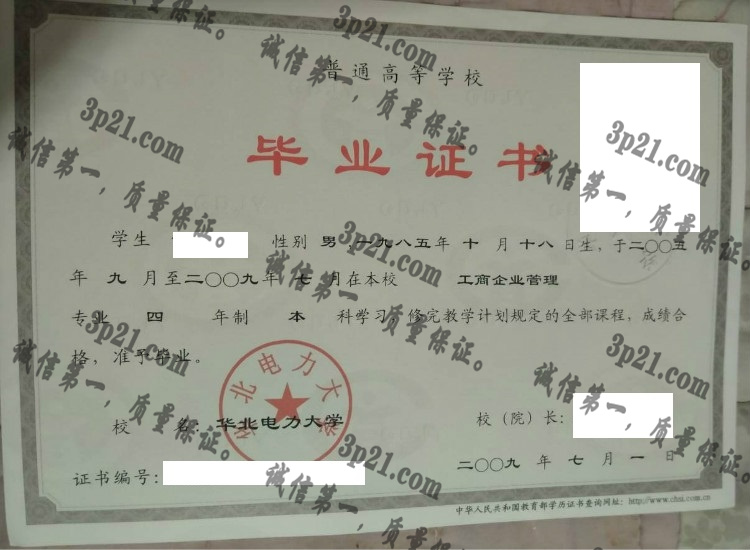 普通高等学校
毕业证书
学生 性别 男，一九八五年 十 月 十八 日生，于二〇〇五
年 九 月至二〇〇九年 七 月在本校 工商企业管理
专业 四 年制 本 科学习，修完教学计划规定的全部课程，成绩合
格，准予毕业。
华北电力大学
校 名：华北电力大学 校（院）长：
二〇〇九 年 七 月 一 日
证书编号：
中华人民共和国教育部学历证书查询网址：http://www.chsi.com.cn
3p21.com
诚信第一，质量保证。
3p21.com
诚信第一，质量保证。
3p21.com
诚信第一，质量保证。
3p21.com
诚信第一，质量保证。
3p21.com
诚信第一，质量保证。
3p21.com
诚信第一，质量保证。
3p21.com
诚信第一，质量保证。